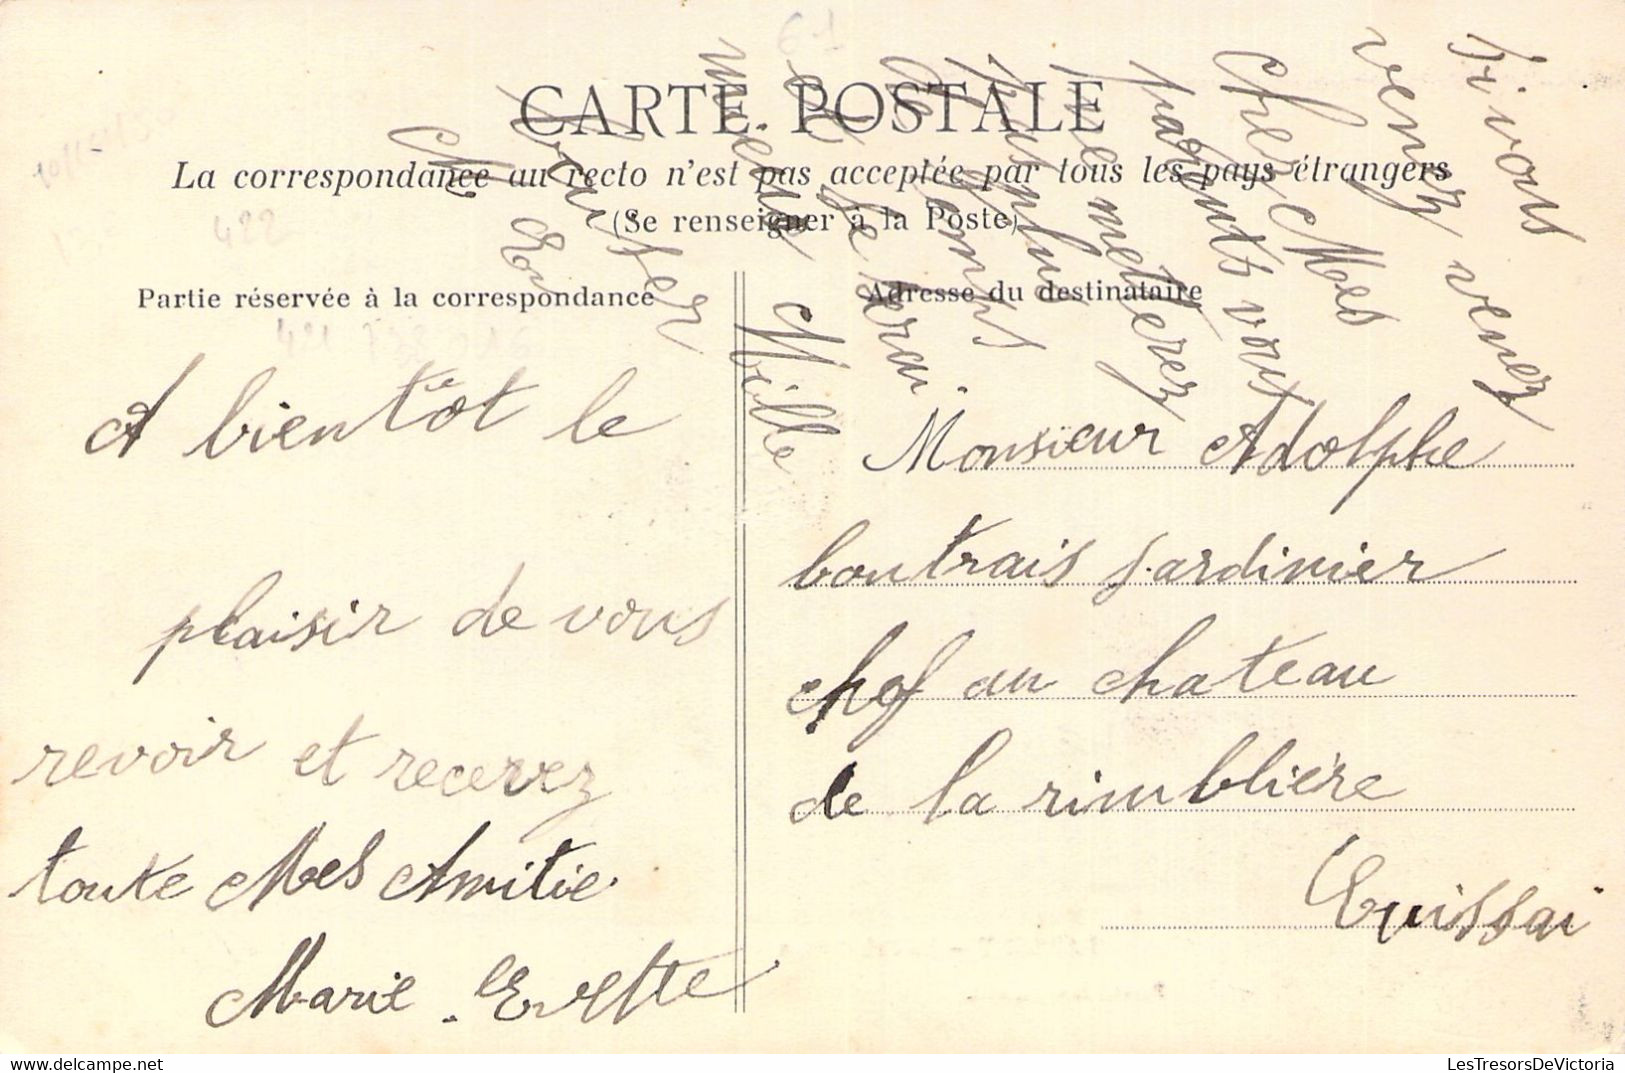 CARTE POSTALE
La correspondance au recto n'est pas acceptée par tous les pays étrangers
(Se renseigner à la Poste)
Partie réservée à la correspondance
Adresse du destinataire
A bientôt le
plaisir de vous
revoir et recevez
toute Mes Amitié
Marie
Monsieur Adolphe
boutrais Jardinier
chef au chateau
de la rimblière
Si vous
venez venez
Chez Mes
parents vous
le meterez
plus
se serai
mieux Mille
baiser
422
LesTresorsDeVictoria